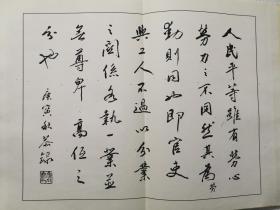 人民平等雖有勞心
勞力之不同然其為勞
動則同也即官吏
與工人不過以分業
之關係各執一業並
無尊卑高低之
分也 庚寅秋恭録